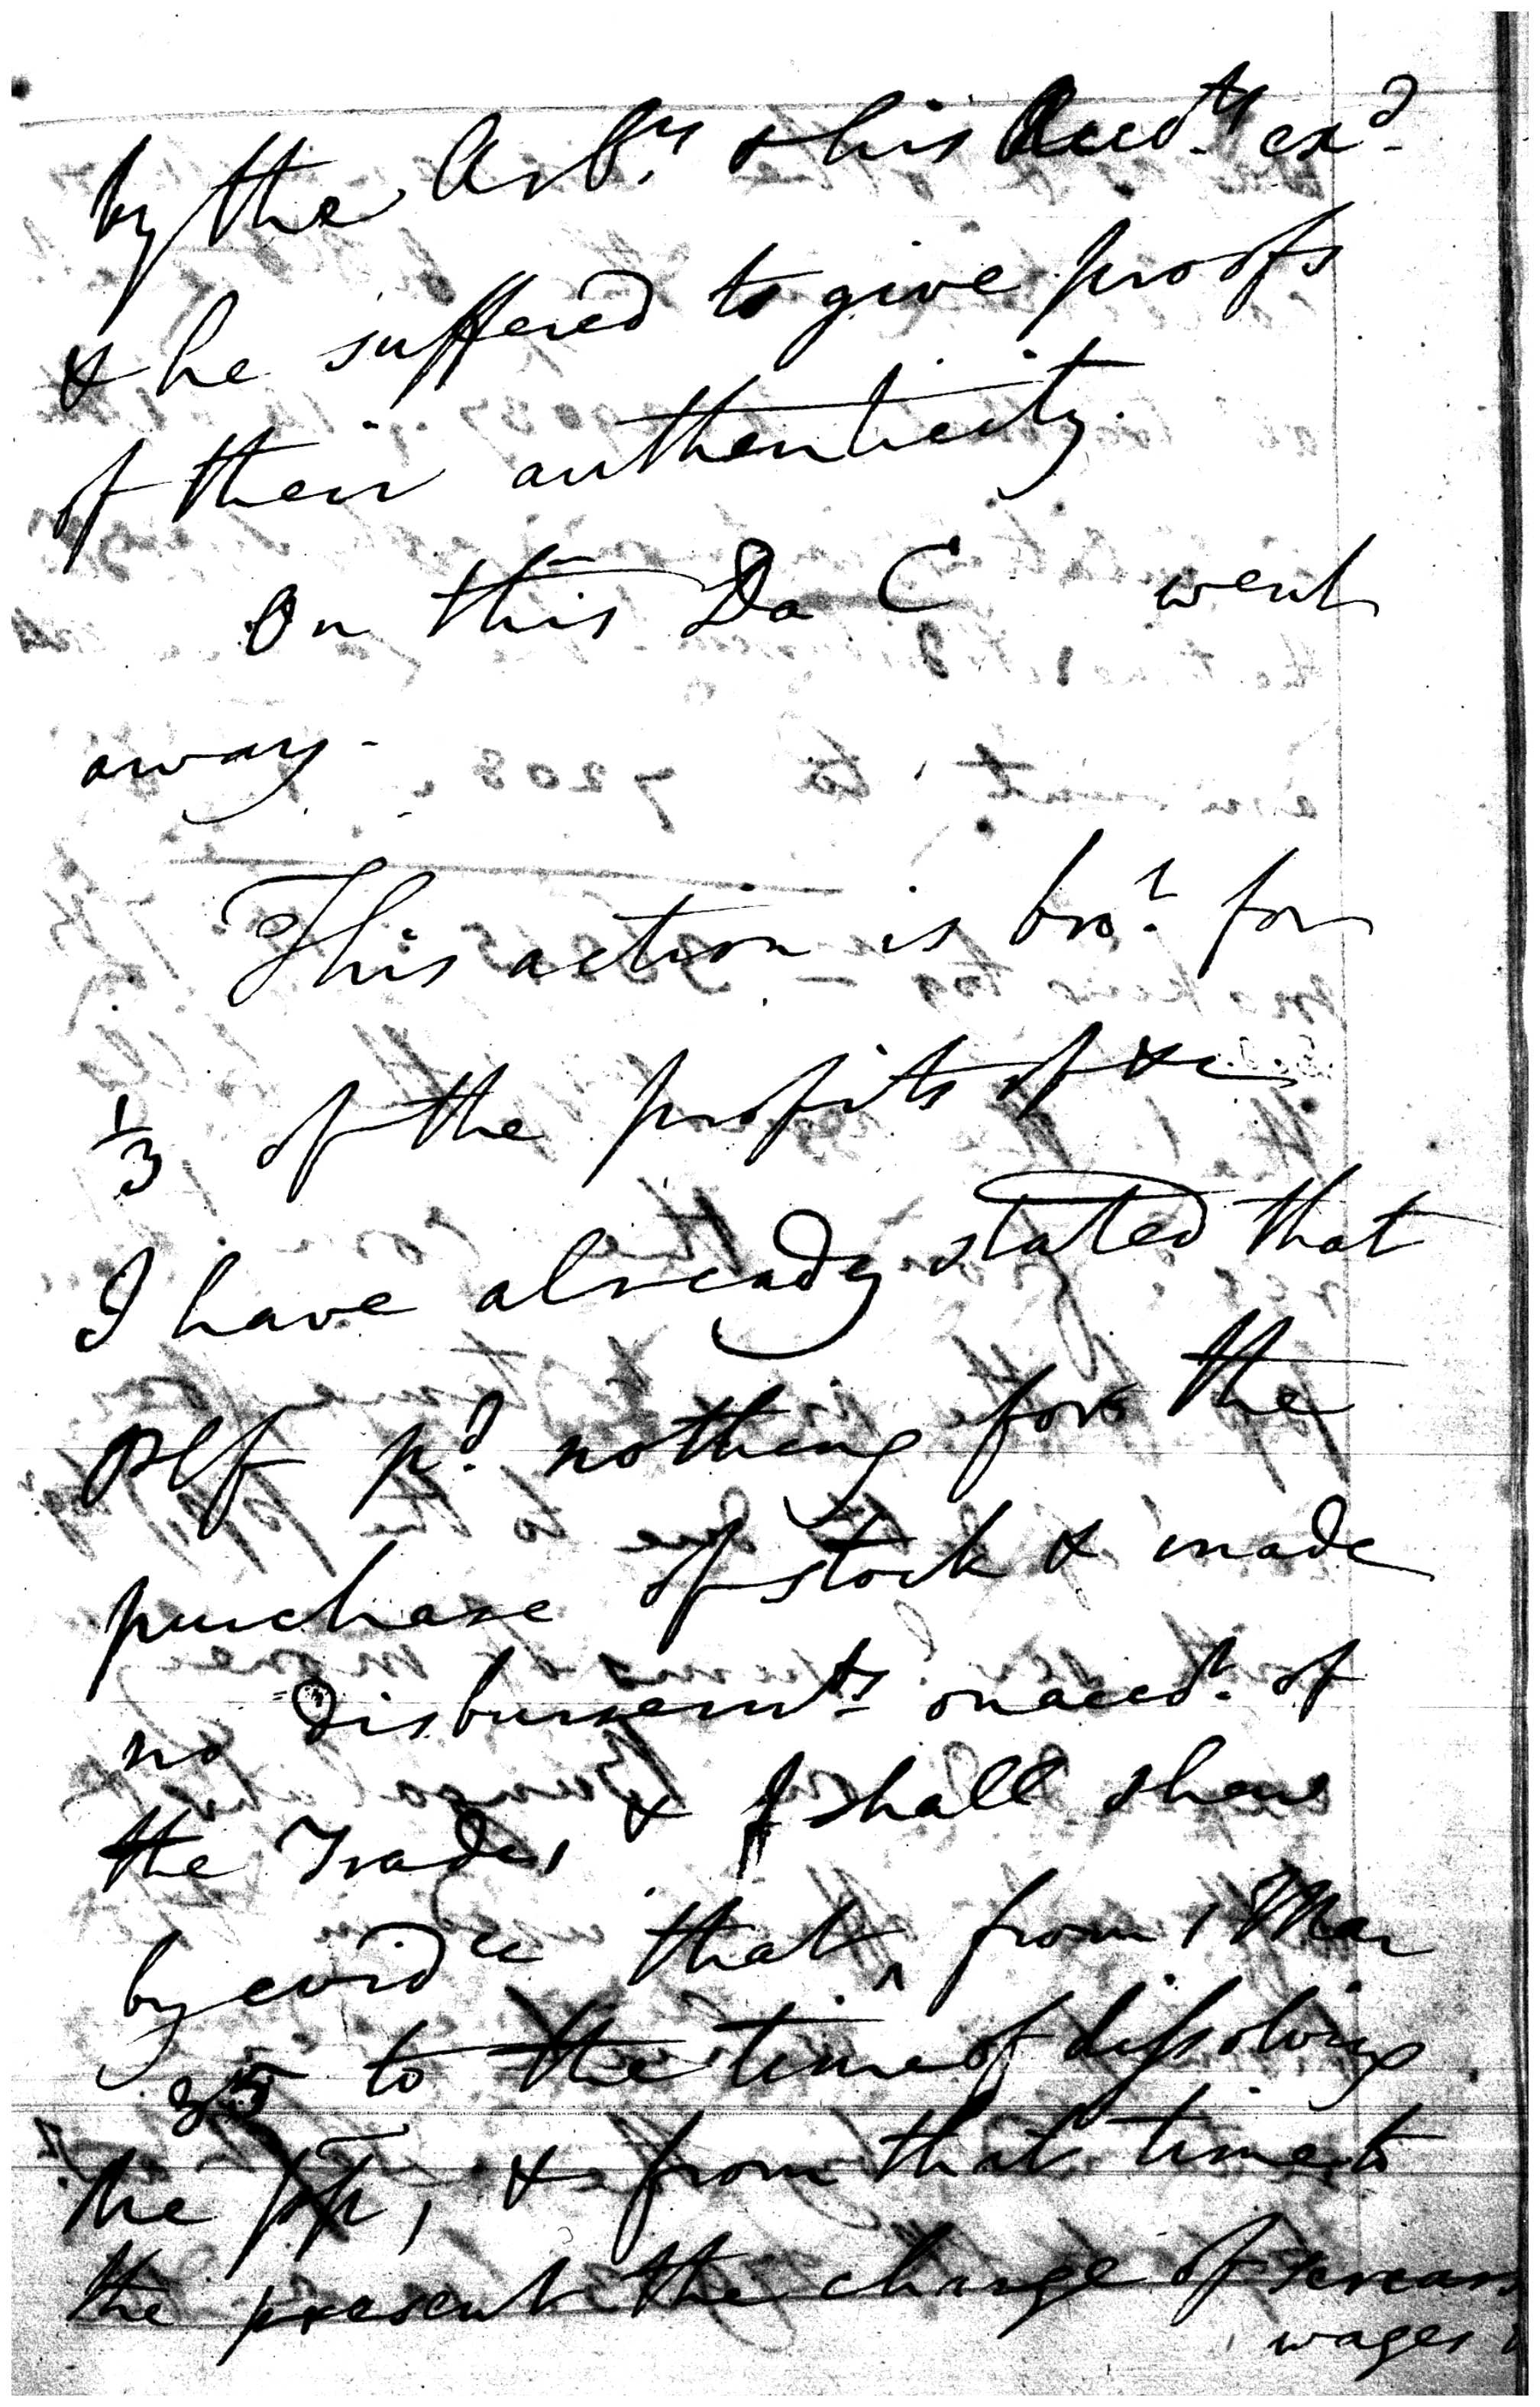 by the Arbrs & his Accots exd
& he suffered to give proofs
of their authenticity.
On this Da C went
away -
This action is brot for
1/3 of the profits of &c
I have already stated that
Plf pd nothing for the
purchase of stock & made
no disbursemts on accot of
the Trade, & I shall shew
by evidce that, from 1 Mar
35 to the time of dissolving
the pp, & from that time to
the present the charge of servants
wages